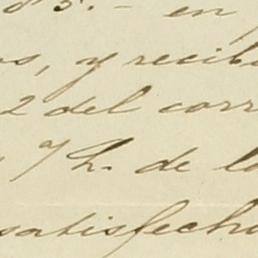 85.- en
os, y recib
2 del corr
7h. de la
satisfecho